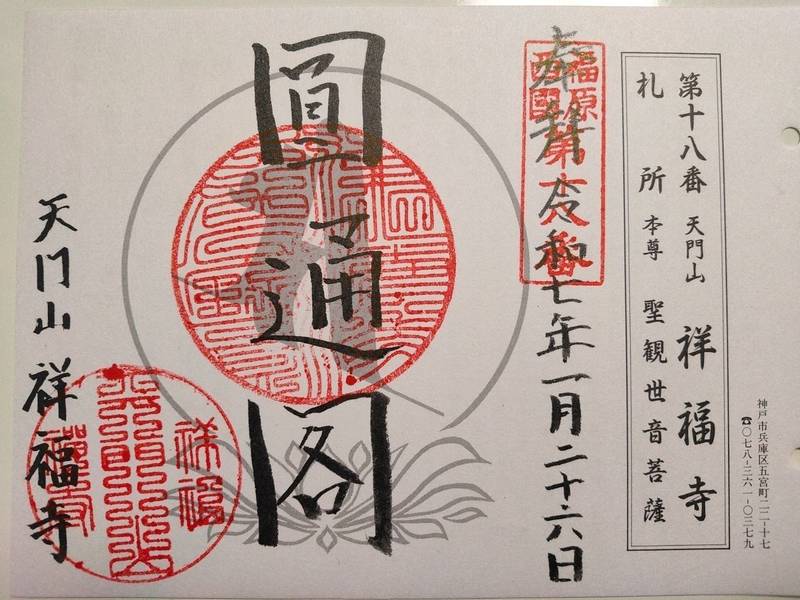 神戸市兵庫区五宮町二二-十七
☎〇七八-三六一-〇三七九
第十八番 天門山 祥福寺
札所 本尊 聖観世音菩薩
福原
西國
第十八番
奉拝 令和七年一月二十六日
圓通閣
天門山 祥福寺
祥福
禅寺